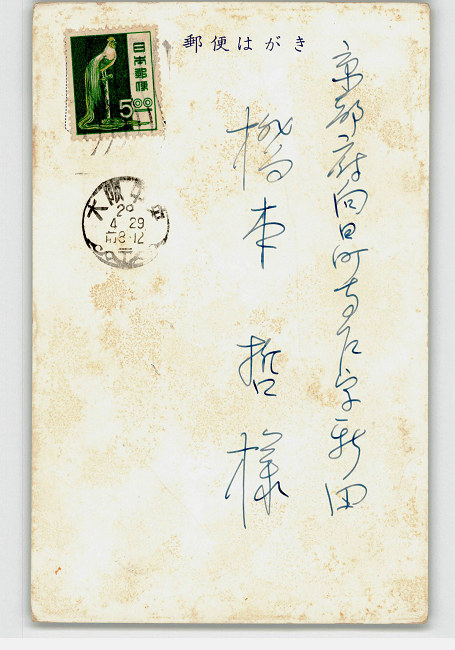 郵便はがき
日本郵便
5.00
京都府向日町寺戸字新田
橋本 哲 様
大阪中央
29
4 29
前8-12